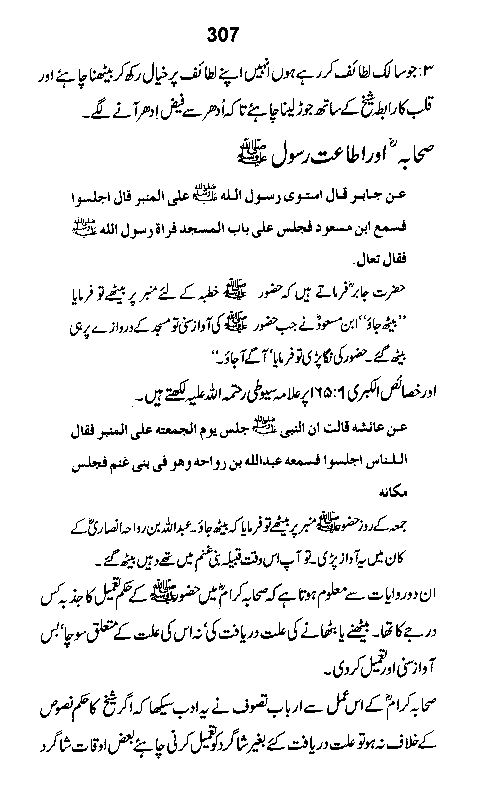 307
۳: جو سالک لطائف کر رہے ہوں انہیں اپنے لطائف پر خیال رکھ کر بیٹھنا چاہئے اور
قلب کا رابطہ شیخ کے ساتھ جوڑ لینا چاہئے تاکہ اُدھر سے فیض اِدھر آنے لگے۔
صحابہؓ اور اطاعت رسول ﷺ
عن جابر قال استوی رسول الله ﷺ علی المنبر قال اجلسوا
فسمع ابن مسعود فجلس علی باب المسجد فراة رسول الله ﷺ
فقال تعال.
حضرت جابرؓ فرماتے ہیں کہ حضور ﷺ خطبہ کے لئے منبر پر بیٹھے تو فرمایا
’’بیٹھ جاؤ‘‘ ابن مسعودؓ نے جب حضور ﷺ کی آواز سنی تو مسجد کے دروازے پر ہی
بیٹھ گئے۔ حضور کی نگاہ پڑی تو فرمایا ’آگے آ جاؤ۔‘‘
اور خصائص الکبری ۱۶۵:۹ پر علامہ سیوطی رحمتہ اللہ علیہ لکھتے ہیں۔
عن عائشہ قالت ان النبی ﷺ جلس یوم الجمعتہ علی المنبر فقال
للناس اجلسوا فسمعه عبدالله بن رواحه وهو فی بنی غنم فجلس
مکانه
جمعہ کے روز حضور ﷺ منبر پر بیٹھے تو فرمایا کہ بیٹھ جاؤ۔ عبداللہ بن رواحہ انصاریؓ کے
کان میں یہ آواز پڑی۔ تو آپ اس وقت قبیلہ بنی غنم میں تھے وہیں بیٹھ گئے۔
ان دو روایات سے معلوم ہوتا ہے کہ صحابہ کرامؓ میں حضور ﷺ کے حکم تعمیل کا جذبہ کس
درجے کا تھا۔ بیٹھنے یا بٹھانے کی علت دریافت کی‘ نہ اس کی علت کے متعلق سوچا‘ بس
آواز سنی اور تعمیل کر دی۔
صحابہ کرامؓ کے اس عمل سے ارباب تصوف نے یہ ادب سیکھا کہ اگر شیخ کا حکم نصوص
کے خلاف نہ ہو تو علت دریافت کئے بغیر شاگرد کو تعمیل کرنی چاہئے بعض اوقات شاگرد